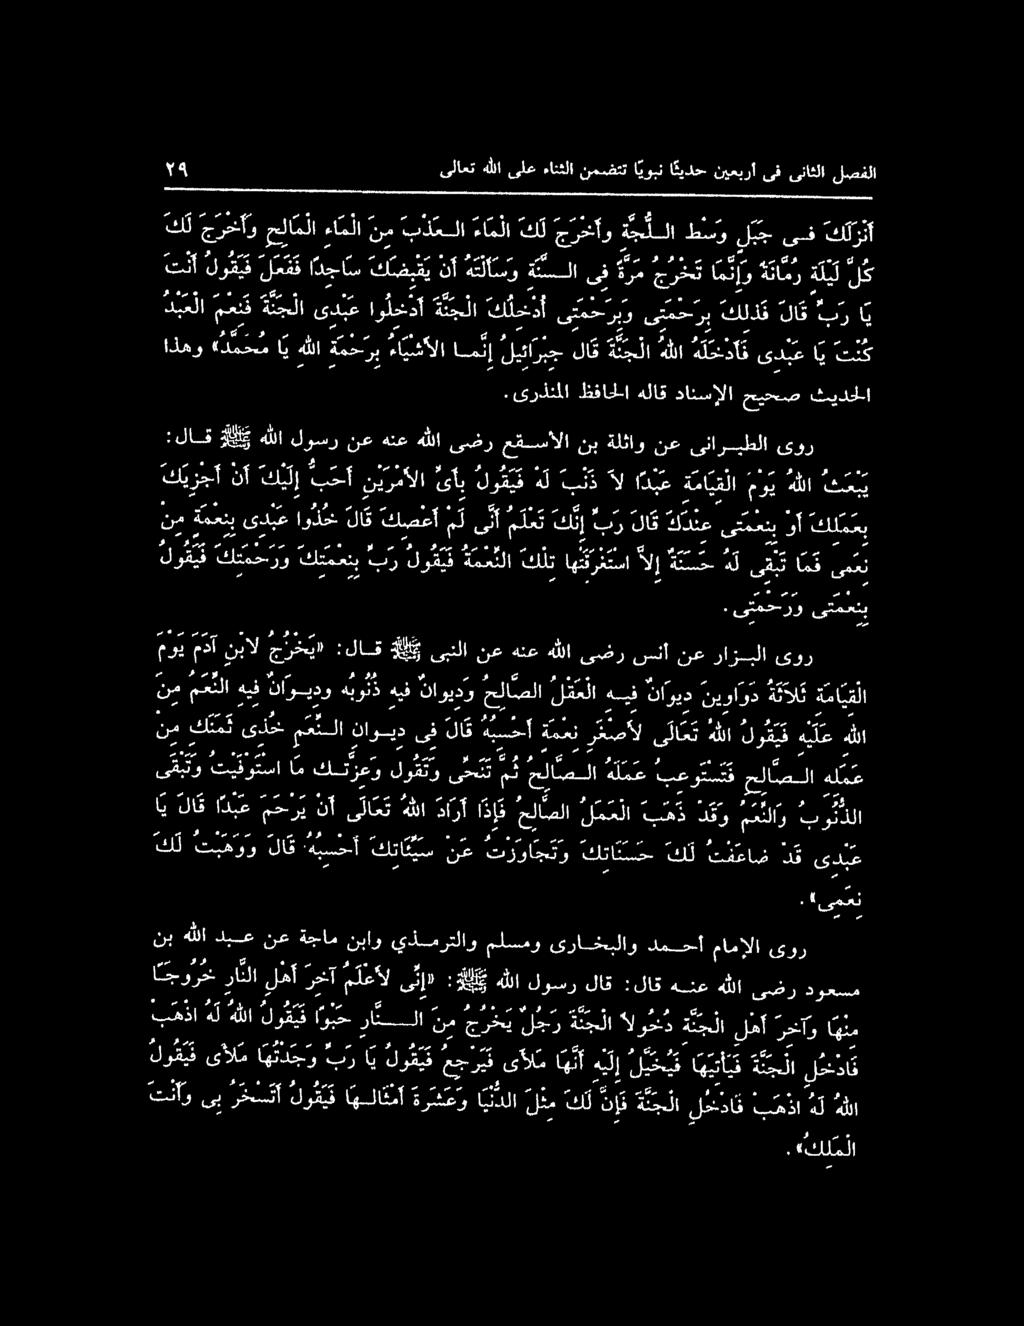 الفصل الثانى فى أربعين حديثًا نبويًا تتضمن الثناء على الله تعالى ٢٩
أَنْزَلَكَ فـى جَبَلٍ وَسْطَ الـلُّجَّةِ وأَخْرَجَ لَكَ الْمَاءَ الـعَذْبَ مِنَ الْمَاءِ الْمَالِحِ وأَخْرَجَ لَكَ
كُلَّ لَيْلَةٍ رُمَّانَةً وَإِنَّمَا تَخْرُجُ مَرَّةً فِى الـسَّنَةِ وَسَأَلْتَهُ أَنْ يَقْبِضَكَ سَاجِدًا فَفَعَلَ فَيَقُولُ أَنْتَ
يَا رَبِّ قَالَ فَذلِكَ بِرَحْمَتِى وَبِرَحْمَتِى أُدْخِلُكَ الْجَنَّةَ أَدْخِلُوا عَبْدِى الْجَنَّةَ فَنِعْمَ الْعَبْدُ
كُنْتَ يَا عَبْدِى فَأَدْخَلَهُ اللهُ الْجَنَّةَ قَال جِبْرَائِيلُ إِنَّمـا الأَشْيَاءُ بِرَحْمَةِ اللهِ يَا مُحَمَّدُ» وهذا
الحديث صحيح الإسناد قاله الحافظ المنذرى.
روى الطبـرانى عن واثلة بن الأسـقع رضى الله عنه عن رسول الله ﷺ قـال:
يَبْعَثُ اللهُ يَوْمَ الْقِيَامَةِ عَبْدًا لاَ ذَنْبَ لَهُ فَيَقُولُ بِأَىِّ الأَمْرَيْنِ أَحَبُّ إِلَيْكَ أَنْ أَجْزِيَكَ
بِعَمَلِكَ أَوْ بِنِعْمَتِى عِنْدَكَ قَالَ رَبِّ إِنَّكَ تَعْلَمُ أَنِّى لَمْ أَعْصِكَ قَالَ خُذُوا عَبْدِى بِنِعْمَةٍ مِنْ
نِعَمِى فَمَا تَبْقَى لَهُ حَسَنَةٌ إِلاَّ اسْتَغْرَقَتْها تِلْكَ النِّعْمَةُ فَيَقُولُ رَبِّ بِنِعْمَتِكَ وَرَحْمَتِكَ فَيَقُولُ
بِنِعْمَتِى وَرَحْمَتِى.
روى البـزار عن أنس رضى الله عنه عن النبى ﷺ قـال: «يَخْرُجُ لابْنِ آدَمَ يَوْمَ
الْقِيَامَةِ ثَلاَثَةُ دَوَاوِينَ دِيوَانٌ فِيـهِ الْعَقْلُ الصَّالِحُ وَدِيوانٌ فِيهِ ذُنُوبُه ودِيـوَانٌ فِيهِ النِّعَمُ مِنَ
اللهِ عَلَيْهِ فَيَقُولُ اللهُ تَعَالَى لأَصْغَرِ نِعْمَةٍ أَحْسِبُهُ قَالَ فِى دِيـوانِ الـنِّعَمِ خُذِى ثَمَنَكِ مِنْ
عَمَلِهِ الـصَّالِحِ فَتَسْتَوعِبُ عَمَلَهُ الـصَّالِحُ ثُمَّ تَنَحَّى وَتَقُول وَعِزَّتِـكَ مَا اسْتَوْفَيْتُ وَتَبْقَى
الذُّنُوبُ وَالنِّعَمُ وَقَدْ ذَهَبَ الْعَمَلُ الصَّالِحُ فَإِذَا أَرَادَ اللهُ تَعَالَى أَنْ يَرْحَمَ عَبْدًا قَالَ يَا
عَبْدِى قَدْ ضَاعَفْتُ لَكَ حَسَنَاتِكَ وَتَجَاوَزْتُ عَنْ سَيِّئَاتِكَ أَحْسِبُهُ قَالَ وَوَهَبْتُ لَكَ
نِعَمِى».
روى الإمام أحـمد والبخـارى ومسلم والترمـذي وابن ماجة عن عـبد الله بن
مسعود رضى الله عنـه قال: قال رسول الله ﷺ: «إِنِّى لأَعْلَمُ آخِرَ أَهْلِ النَّارِ خُرُوجـًا
مِنْهَا وَآخِرَ أَهْلِ الْجَنَّةِ دُخُولاً الْجَنَّةَ رَجُلٌ يَخْرُجُ مِنَ الـنَّارِ حَبْوًا فَيَقُولُ اللهُ لَهُ اذْهَبْ
فَادْخُلِ الْجَنَّةَ فَيَأْتِيَهَا فَيُخَيَّلُ إِلَيْهِ أَنَّهَا مَلأَى فَيَرْجِعُ فَيَقُولُ يَا رَبِّ وَجَدْتُهَا مَلأَى فَيَقُولُ
اللهُ لَهُ اذْهَبْ فَادْخُلِ الْجَنَّةَ فَإِنَّ لَكَ مِثْلَ الدُّنْيَا وَعَشَرَةَ أَمْثَالِـهَا فَيَقُولُ أَتَسْخَرُ بِى وَأَنْتَ
الْمَلِكُ».